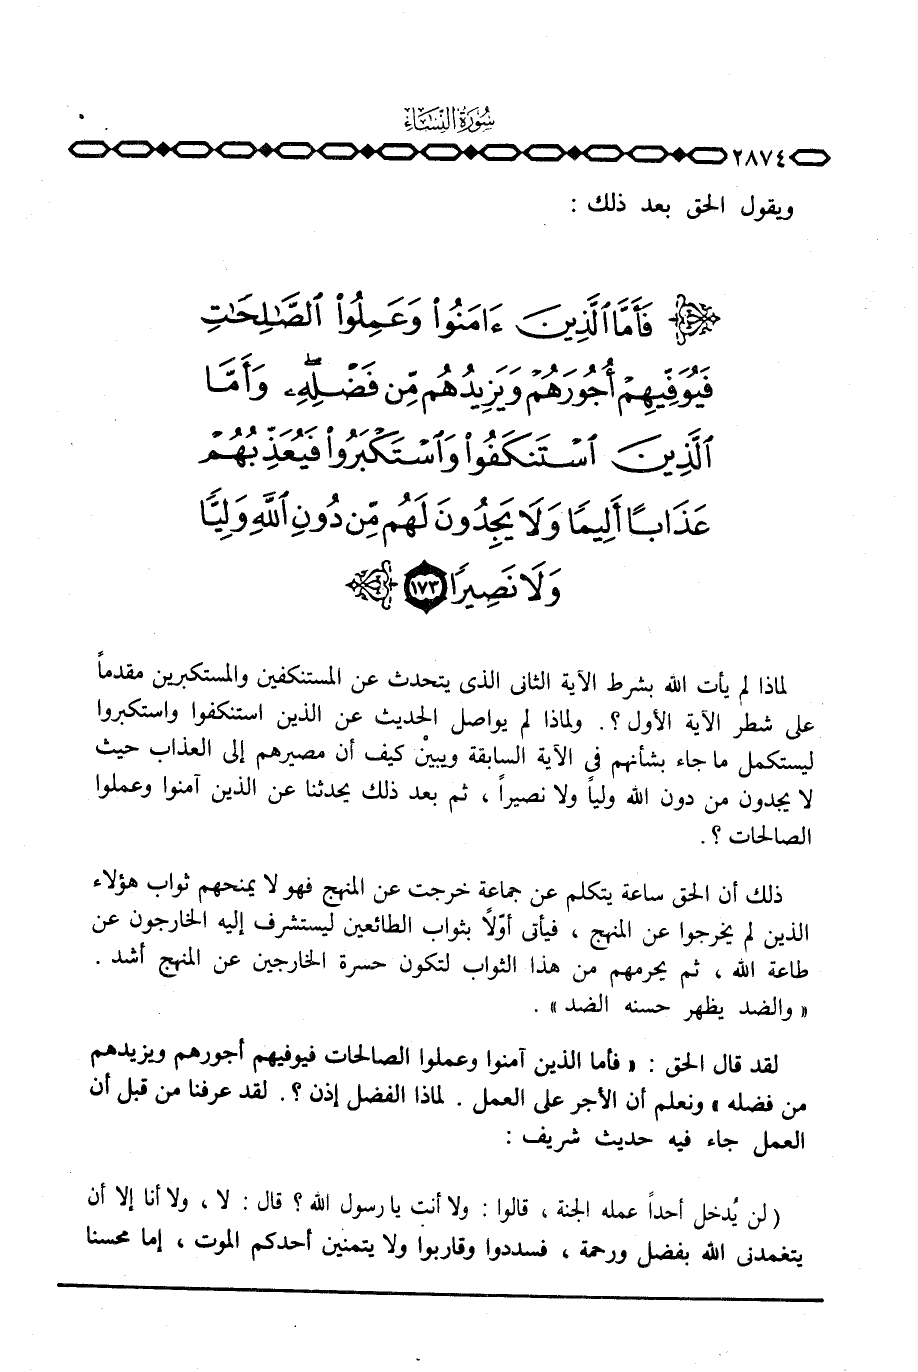 سُورَةُ النِّسَاءِ
٢٨٧٤
ويقول الحق بعد ذلك :
فَأَمَّا ٱلَّذِينَ ءَامَنُوا۟ وَعَمِلُوا۟ ٱلصَّٰلِحَٰتِ
فَيُوَفِّيهِمْ أُجُورَهُمْ وَيَزِيدُهُم مِّن فَضْلِهِۦ ۖ وَأَمَّا
ٱلَّذِينَ ٱسْتَنكَفُوا۟ وَٱسْتَكْبَرُوا۟ فَيُعَذِّبُهُمْ
عَذَابًا أَلِيمًا وَلَا يَجِدُونَ لَهُم مِّن دُونِ ٱللَّهِ وَلِيًّا
وَلَا نَصِيرًا ١٧٣
لماذا لم يأت الله بشرط الآية الثانى الذى يتحدث عن المستنكفين والمستكبرين مقدماً
على شطر الآية الأول ؟ . ولماذا لم يواصل الحديث عن الذين استنكفوا واستكبروا
ليستكمل ما جاء بشأنهم فى الآية السابقة ويبينْ كيف أن مصيرهم إلى العذاب حيث
لا يجدون من دون الله ولياً ولا نصيراً ، ثم بعد ذلك يحدثنا عن الذين آمنوا وعملوا
الصالحات ؟ .
ذلك أن الحق ساعة يتكلم عن جماعة خرجت عن المنهج فهو لا يمنحهم ثواب هؤلاء
الذين لم يخرجوا عن المنهج ، فيأتى أوّلاً بثواب الطائعين ليستشرف إليه الخارجون عن
طاعة الله ، ثم يحرمهم من هذا الثواب لتكون حسرة الخارجين عن المنهج أشد .
« والضد يظهر حسنه الضد » .
لقد قال الحق : « فأما الذين آمنوا وعملوا الصالحات فيوفيهم أجورهم ويزيدهم
من فضله » ونعلم أن الأجر على العمل . لماذا الفضل إذن ؟ . لقد عرفنا من قبل أن
العمل جاء فيه حديث شريف :
( لن يُدخل أحداً عمله الجنة ، قالوا : ولا أنت يا رسول الله ؟ قال : لا ، ولا أنا إلا أن
يتغمدنى الله بفضل ورحمة ، فسددوا وقاربوا ولا يتمنين أحدكم الموت ، إما محسنا